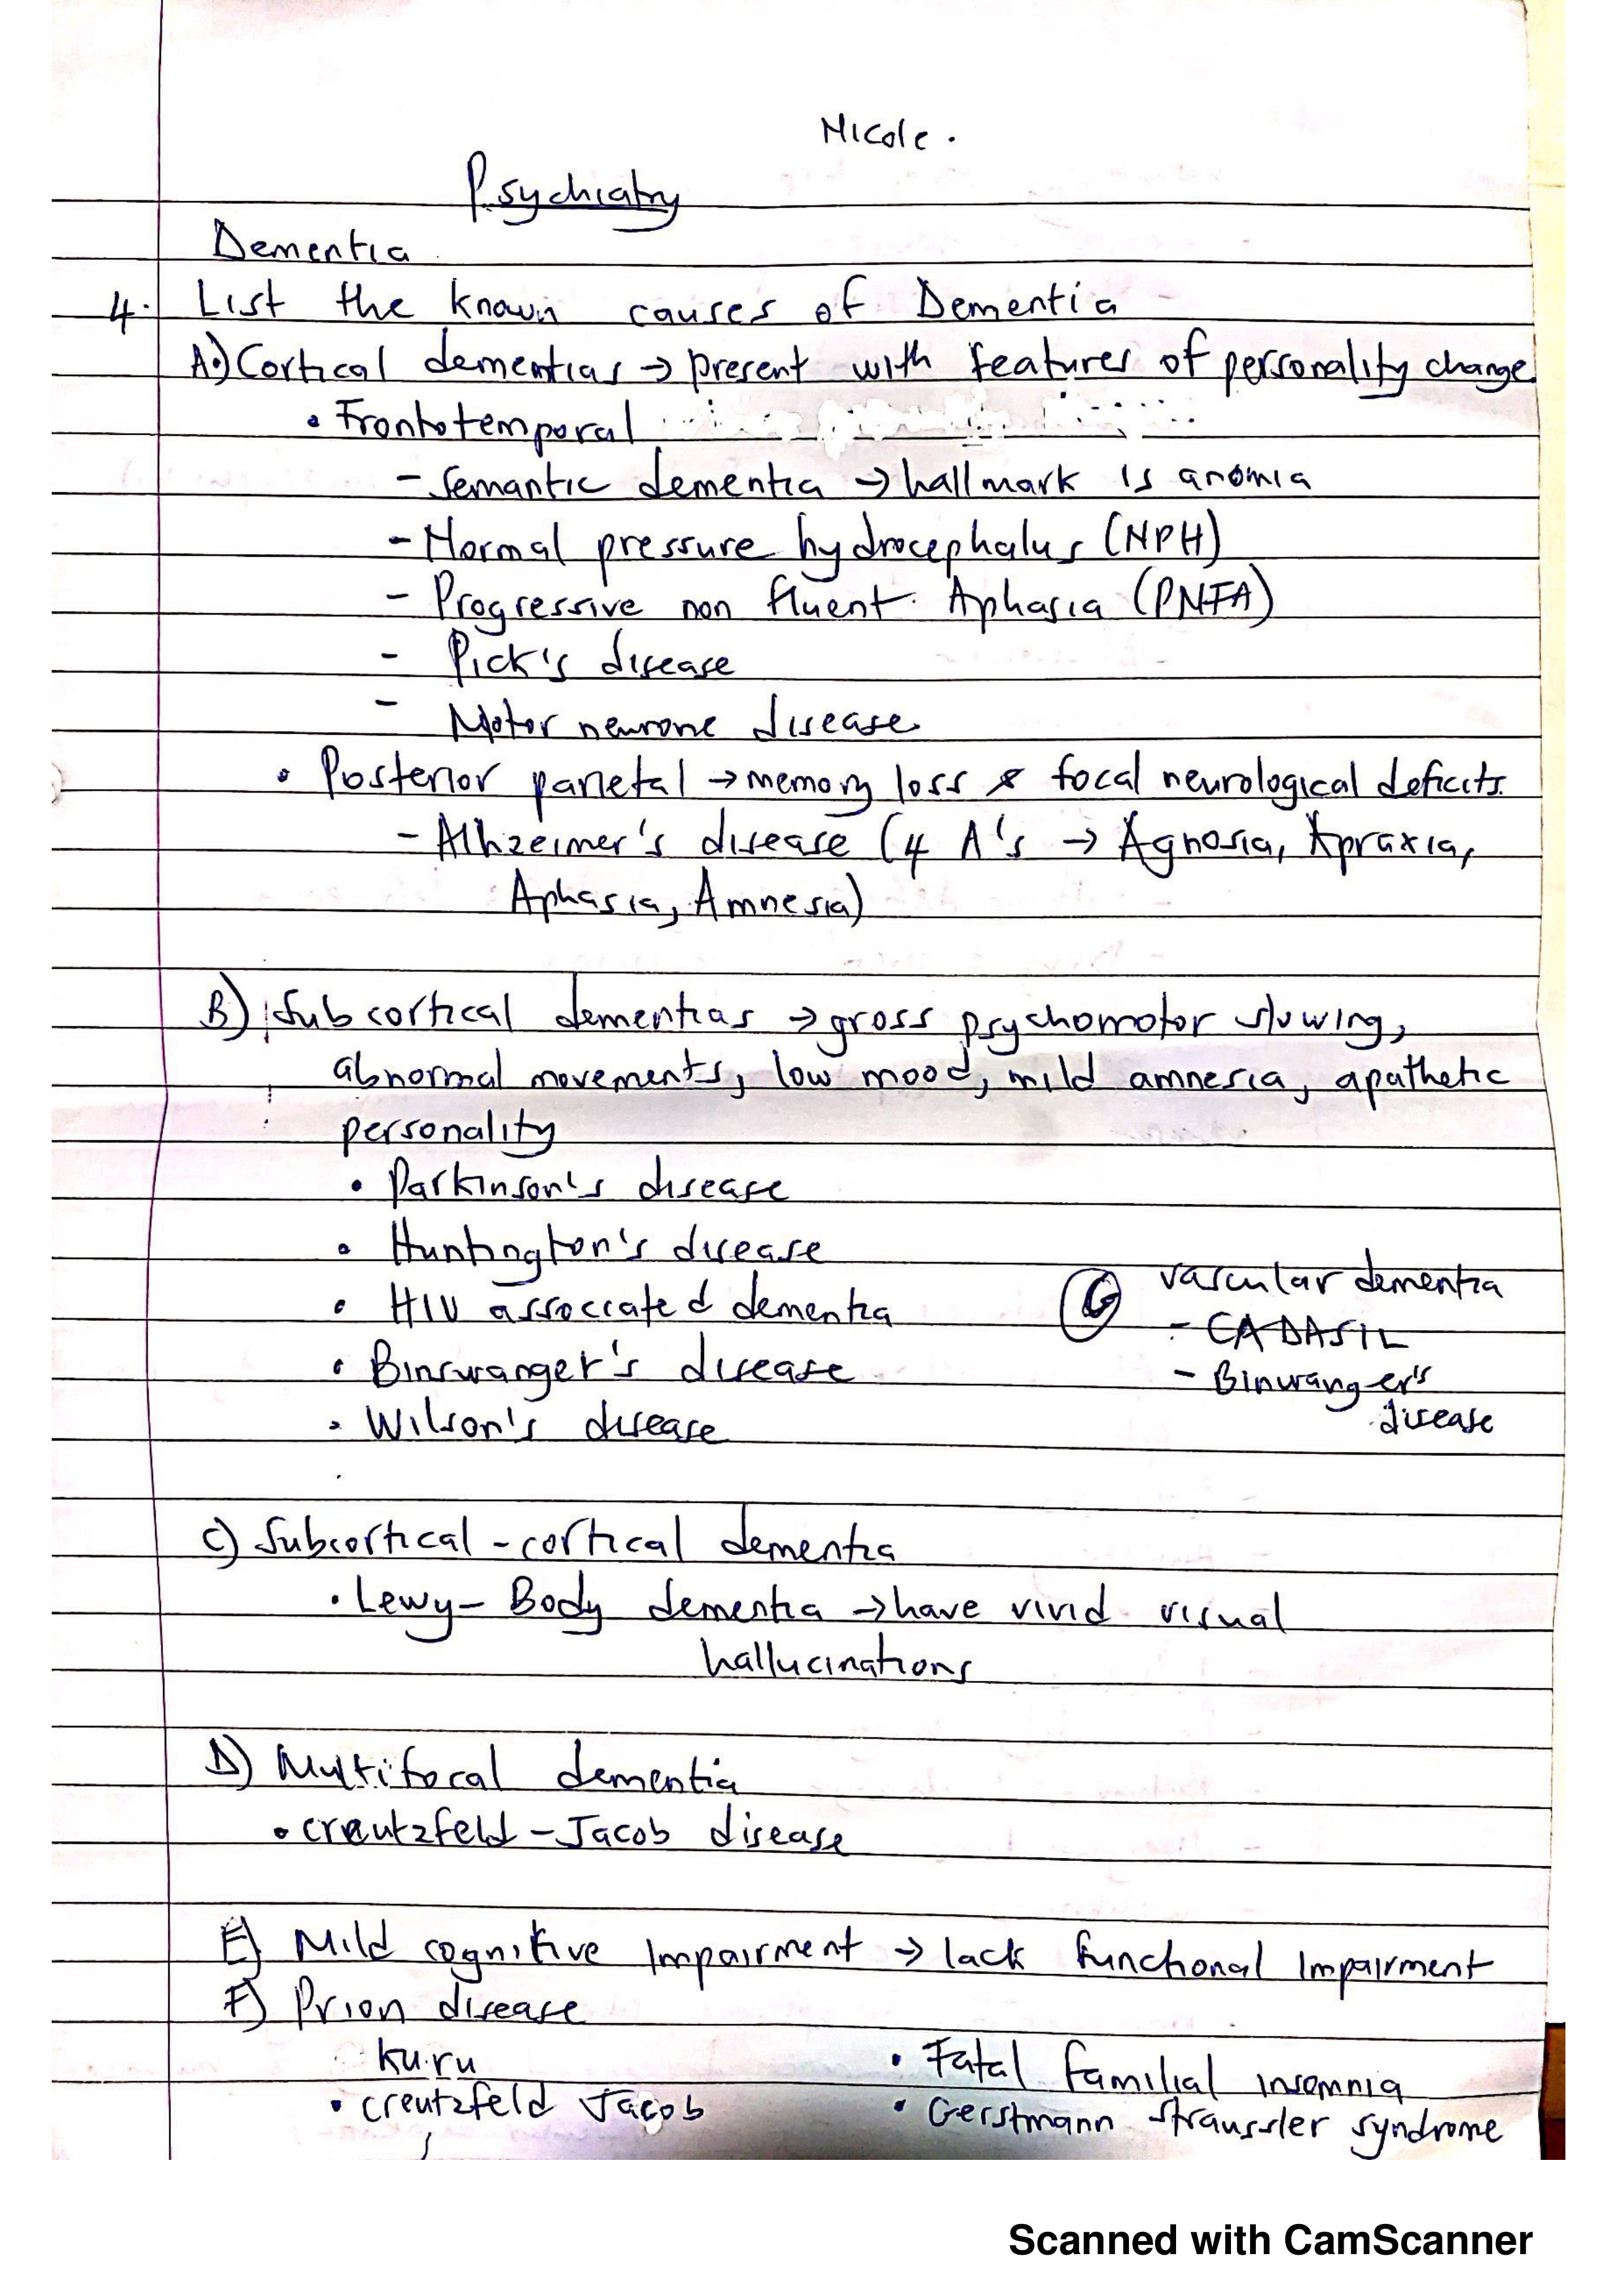 Nicole.
Psychiatry
Dementia
4. List the known causes of Dementia
A.) Cortical dementias → present with features of personality change
• Frontotemporal
- Semantic dementia → hallmark is anomia
- Normal pressure hydrocephalus (NPH)
- Progressive non fluent Aphasia (PNFA)
- Pick's disease
- Motor neurone disease
• Posterior parietal → memory loss & focal neurological deficits.
- Alhzeimer's disease (4 A's → Agnosia, Apraxia,
Aphasia, Amnesia)
B) Subcortical dementias → gross psychomotor slowing,
abnormal movements, low mood, mild amnesia, apathetic
personality
• Parkinson's disease
• Huntington's disease
• HIV associated dementia
• Binswanger's disease
• Wilson's disease
G vascular dementia
- CADASIL
- Binwanger's
disease
C) Subcortical - cortical dementia
• Lewy - Body dementia → have vivid visual
hallucinations
D) Multifocal dementia
• Creutzfeld - Jacob disease
E) Mild cognitive Impairment → lack functional Impairment
F) Prion disease
kuru
• Creutzfeld Jacob
• Fatal familial insomnia
• Gerstmann straussler syndrome
Scanned with CamScanner